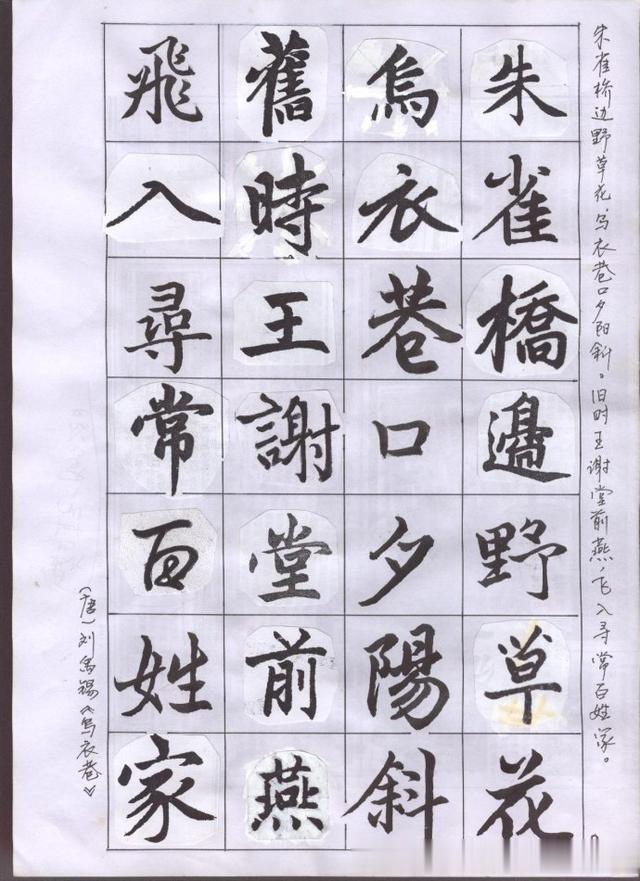 朱雀橋邊野草花
烏衣巷口夕陽斜
舊時王謝堂前燕
飛入尋常百姓家
朱雀桥边野草花,乌衣巷口夕阳斜。旧时王谢堂前燕,飞入寻常百姓家。
(唐)刘禹锡《乌衣巷》